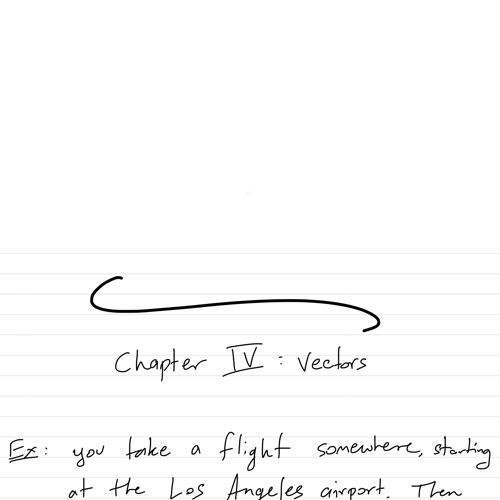 Chapter IV : Vectors
Ex: you take a flight somewhere, starting
at the Los Angeles airport. Then